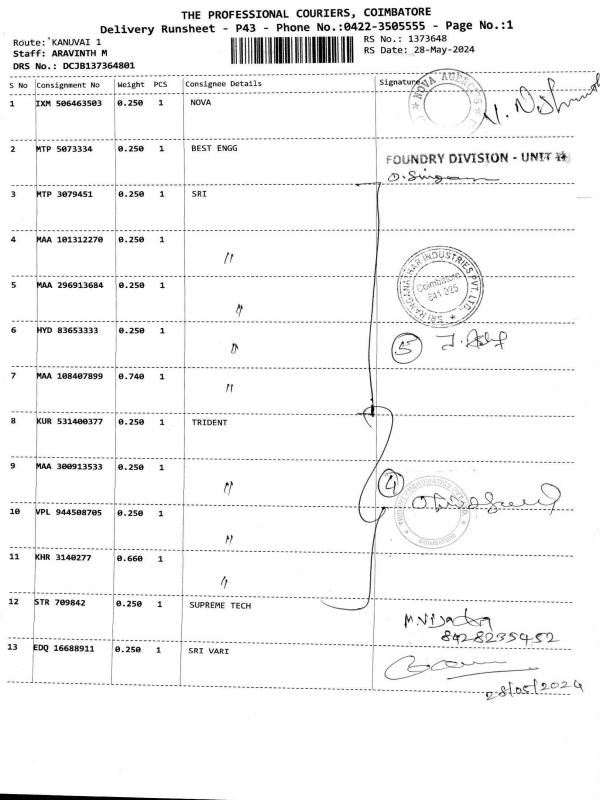 THE PROFESSIONAL COURIERS, COIMBATORE
Delivery Runsheet - P43 - Phone No.:0422-3505555 - Page No.:1
Route: KANUVAI 1
RS No.: 1373648
Staff: ARAVINTH M
RS Date: 28-May-2024
DRS No.: DCJB137364801
S No Consignment No Weight PCS Consignee Details Signature
1 IXM 506463503 0.250 1 NOVA
NOVA AGENCIES
2 MTP 5073334 0.250 1 BEST ENGG
FOUNDRY DIVISION - UNIT
3 MTP 3079451 0.250 1 SRI
4 MAA 101312270 0.250 1 〃
5 MAA 296913684 0.250 1 〃
SRI RANGANATHAR INDUSTRIES PVT. LTD.,
Coimbatore
641 025
6 HYD 83653333 0.250 1 〃
5
7 MAA 108407899 0.740 1 〃
8 KUR 531400377 0.250 1 TRIDENT
9 MAA 300913533 0.250 1 〃
4
10 VPL 944508705 0.250 1 〃
TRIDENT PNEUMATICS PVT LTD.
COIMBATORE
11 KHR 3140277 0.660 1 〃
12 STR 709842 0.250 1 SUPREME TECH
8428235452
13 EDQ 16688911 0.250 1 SRI VARI
28/05/2024